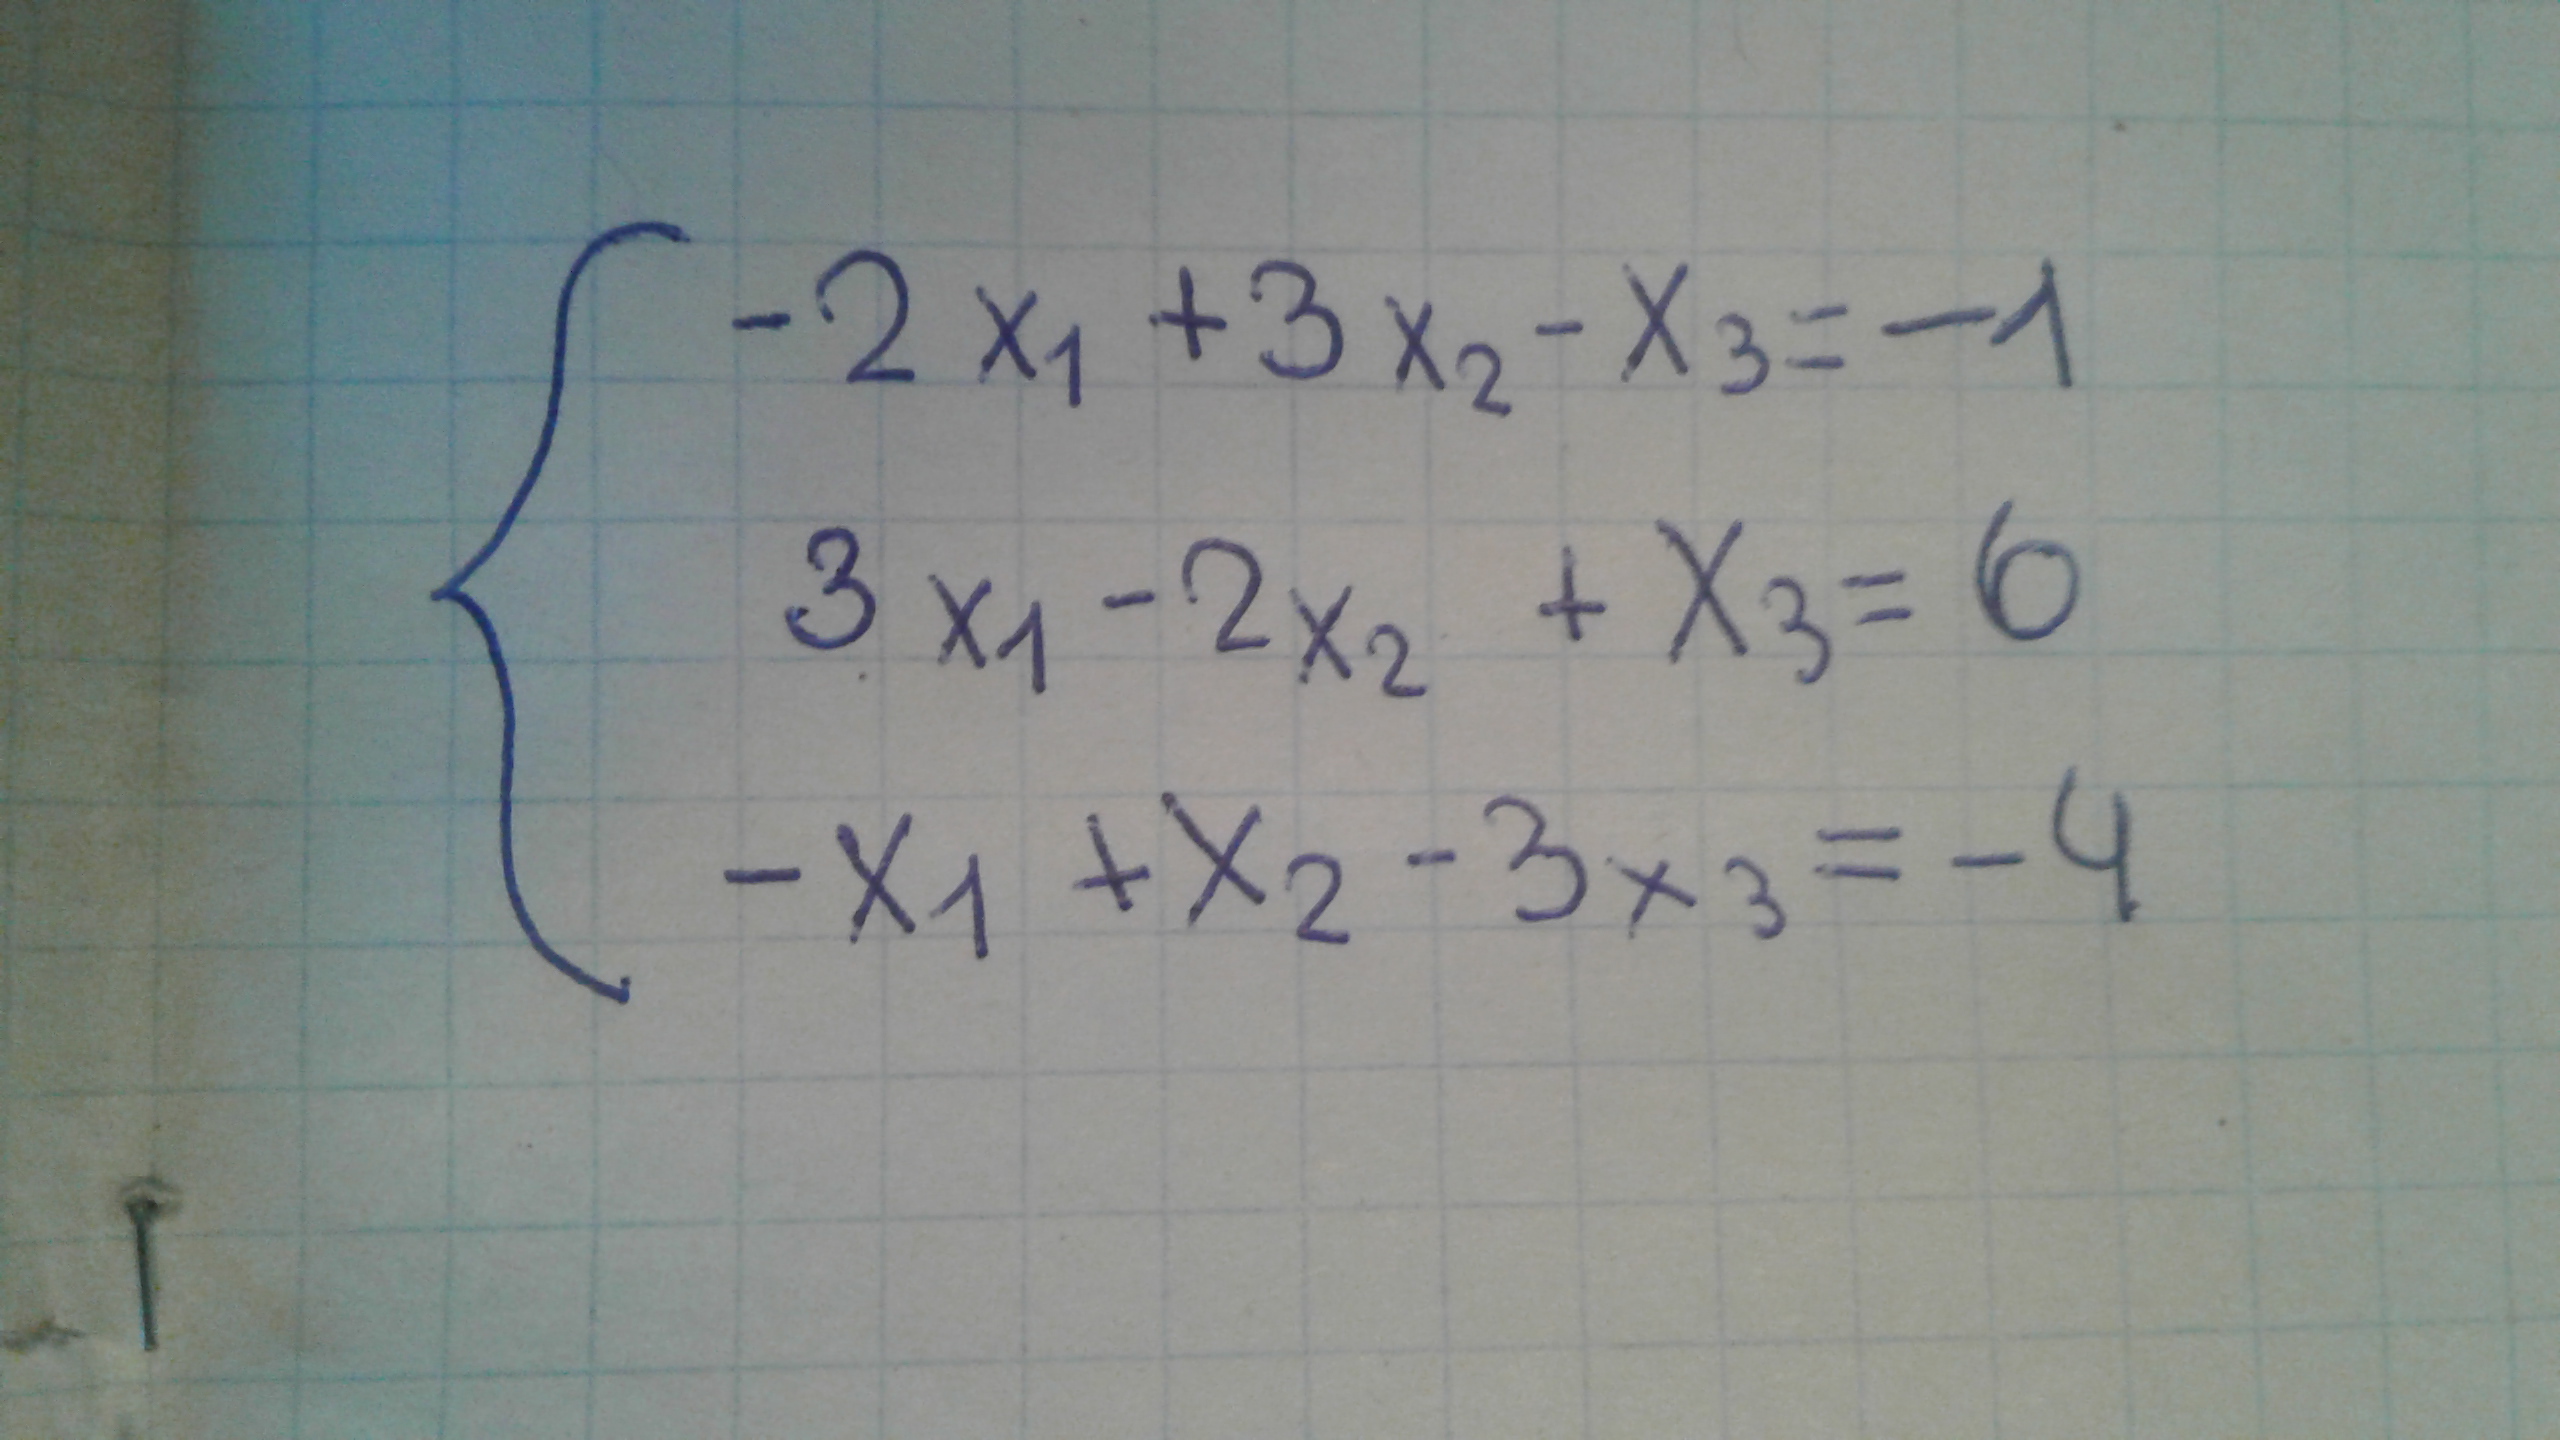 -2x₁ + 3x₂ - x₃ = -1
3x₁ - 2x₂ + x₃ = 6
-x₁ + x₂ - 3x₃ = -4